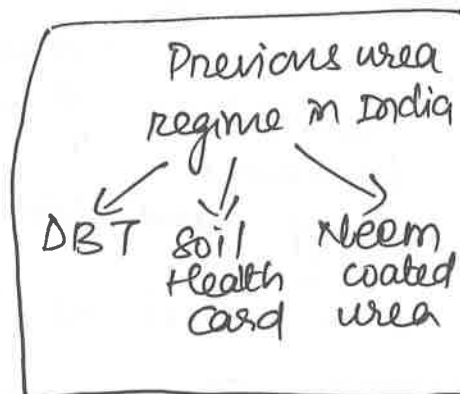 Previous urea
regime in India
DBT
Soil
Health
Card
Neem
coated
urea